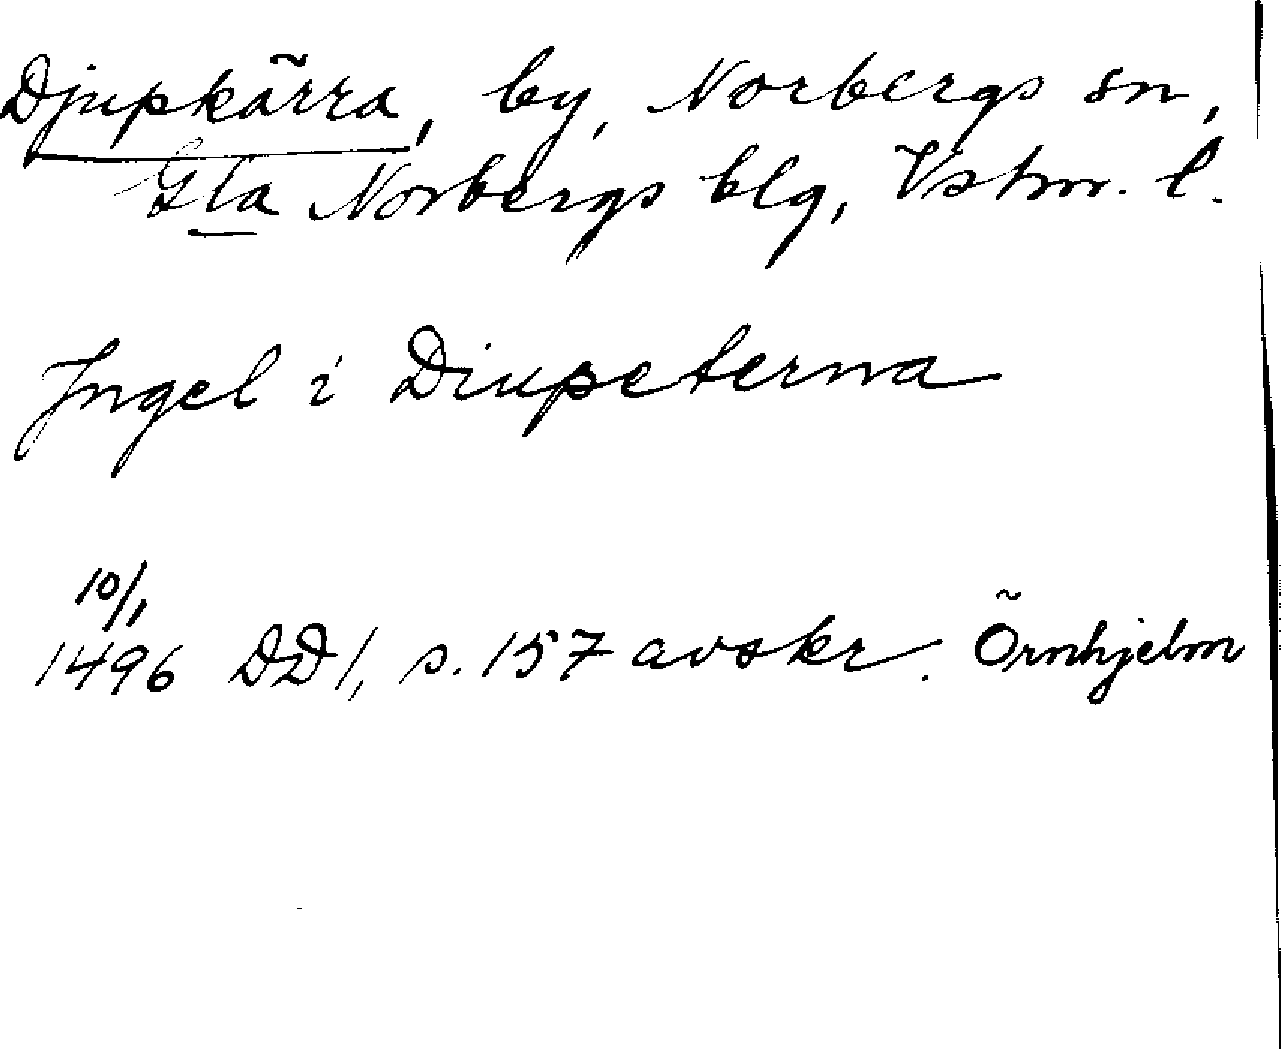 Djupkärra, by, Norbergs sn,
Gla Norbergs blg, Vstm. l.
Ingel i Diupeterna
10/1
1496 DD 1, s. 157 avskr. Örnhjelm